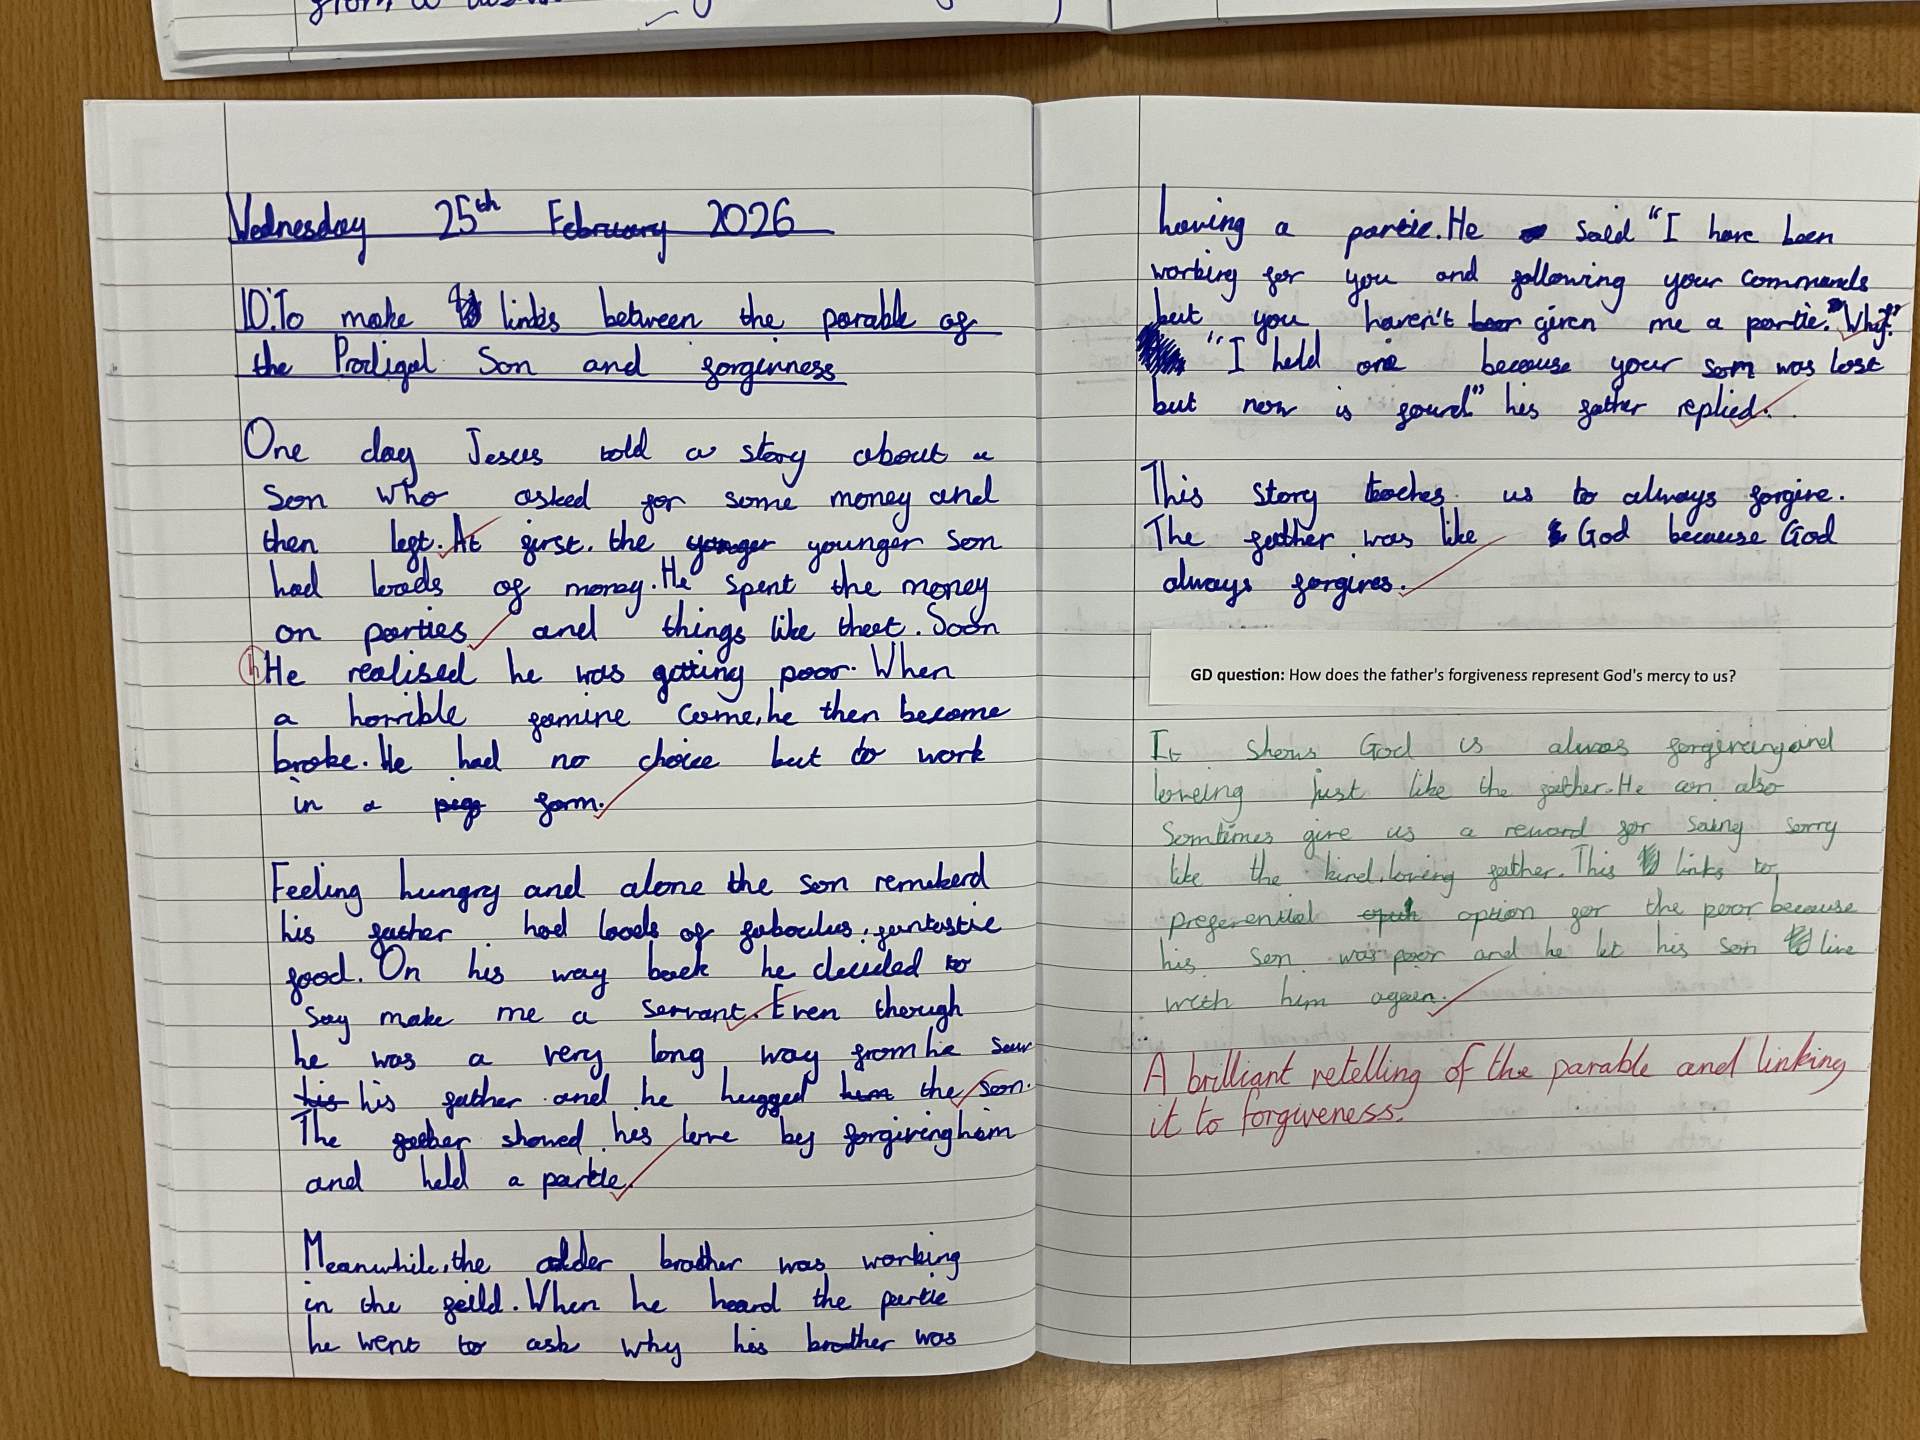 Wednesday 25th February 2026
LO: To make links between the parable of
the Prodigal Son and forginness
One day Jesus told a story about a
Son who asked for some money and
then left. At first, the younger son
had loads of money. He spent the money
on parties and things like that. Soon
h He realised he was getting poor. When
a horrible famine came, he then become
broke. He had no choice but to work
in a pigs farm.
Feeling hungry and alone the son remeberd
his father had loads of faboulus, fantastic
food. On his way back he decided to
say make me a servant. Even though
he was a very long way from he saw
his his father and he hugged him the son.
The father showed his love by forgiving him
and held a partie.
Meanwhile, the older brother was working
in the feild. When he heard the partie
he went to ask why his brother was
having a partie. He said "I have been
working for you and following your commands
but you haven't given me a partie." Why?"
"I held one because your son was lost
but now is found" his father replied.
This story teaches us to always forgive.
The father was like God because God
always forgives.
GD question: How does the father's forgiveness represent God's mercy to us?
It shows God is always forgiveing and
loveing just like the father. He can also
Somtimes give us a reward for saing sorry
like the kind, loving father. This links to
preferential option for the poor because
his son was poor and he let his son live
with him again.
A brilliant retelling of the parable and linking
it to forgiveness.